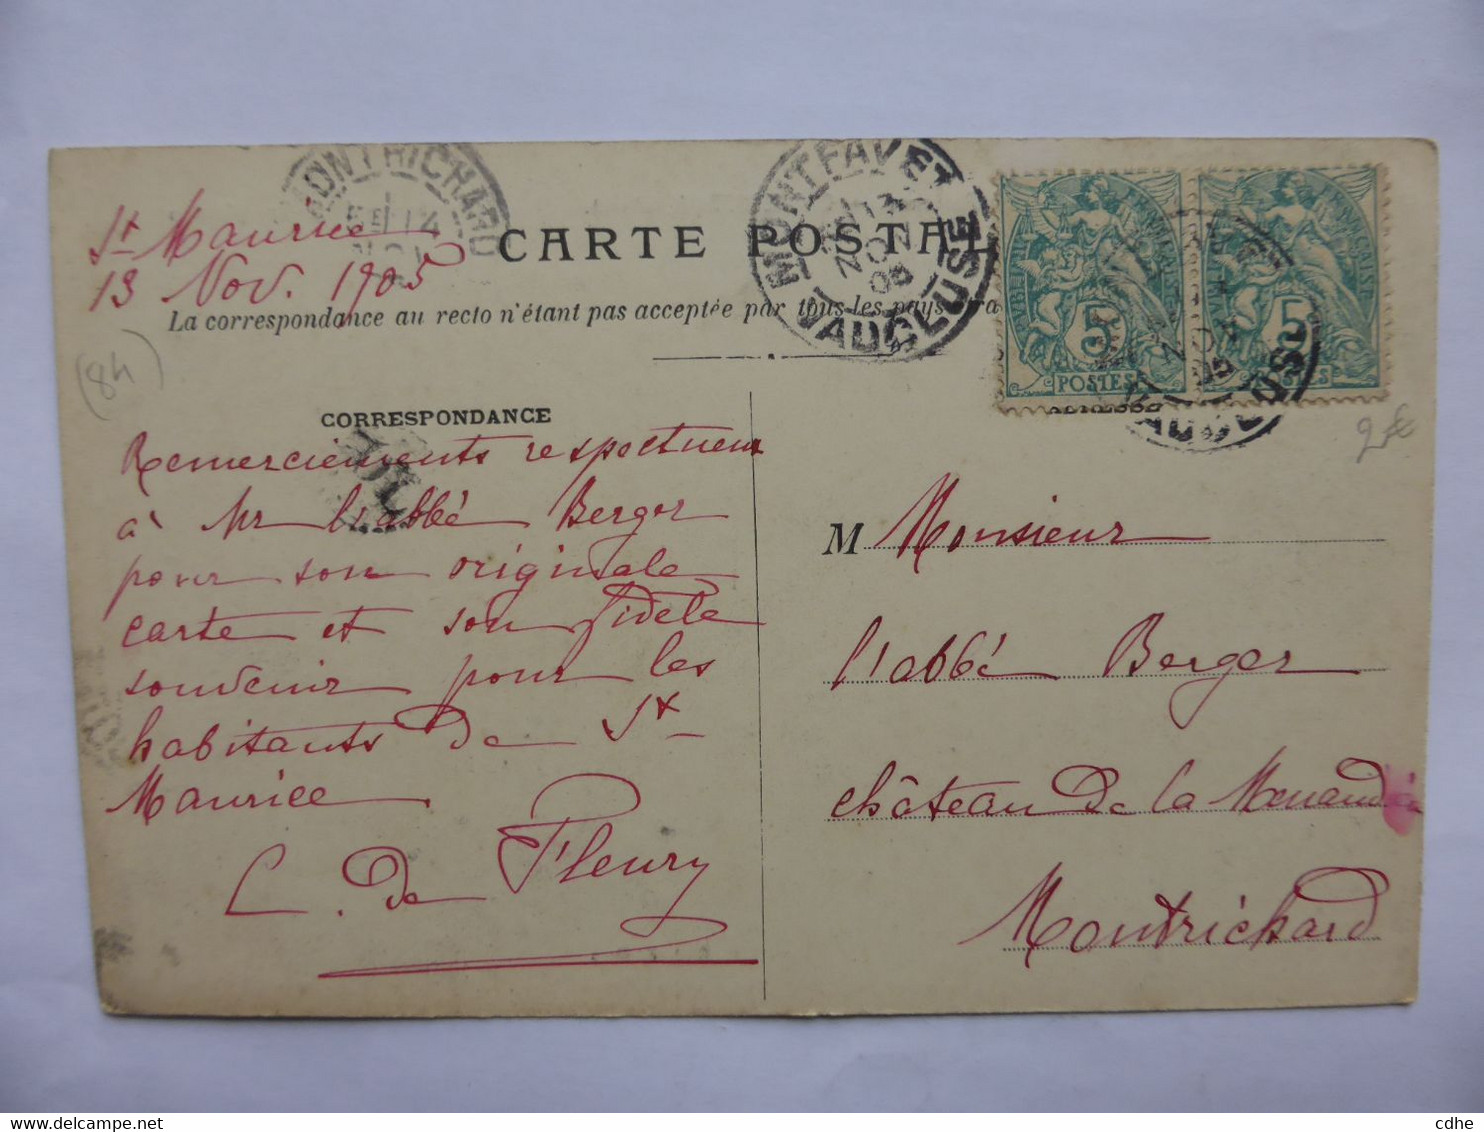 MONTRICHARD
St Maurice
13 Nov. 1905
CARTE POSTAL
MONTFAVET
13
NOV
05
VAUCLUSE
La correspondance au recto n'étant pas acceptée par tous les pays
5
POSTES
5
(84)
2€
CORRESPONDANCE
Remerciements respectueux
à Mr l'abbé Berger
pour son originale
carte et son fidèle
souvenir pour les
habitants de St
Maurice.
C. de Fleury
M Monsieur
l'abbé Berger
château de la
Montrichard
cdhe